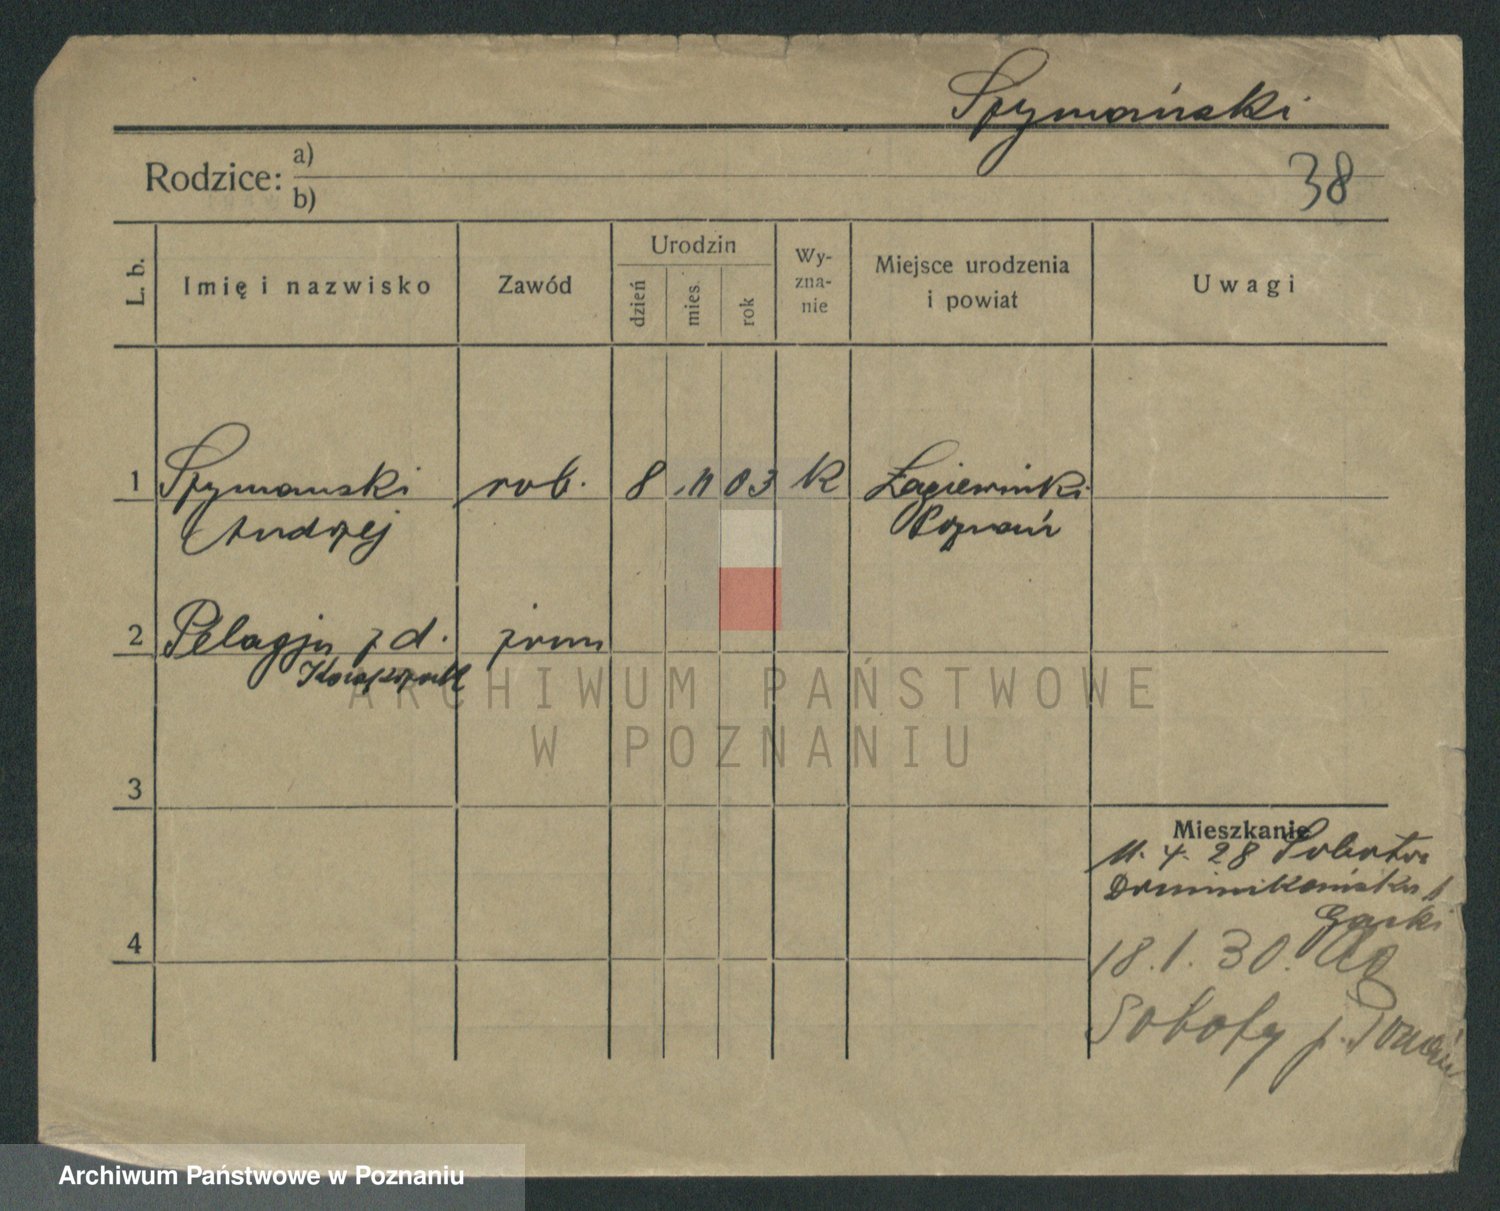 Szymański
38
Rodzice: a)
b)
L. b.
Imię i nazwisko
Zawód
Urodzin
dzień
mies.
rok
Wy-
zna-
nie
Miejsce urodzenia
i powiat
Uwagi
1
Szymanski
Andrzej
rob.
8 11 03
K
Łagiewniki
Poznań
2
Pelagja z d.
żona
ARCHIWUM PAŃSTWOWE
W POZNANIU
3
4
Mieszkanie
11. 4. 28 Sobota
Dominikańska
18. 1. 30.
Soboty p. Poznań
Archiwum Państwowe w Poznaniu